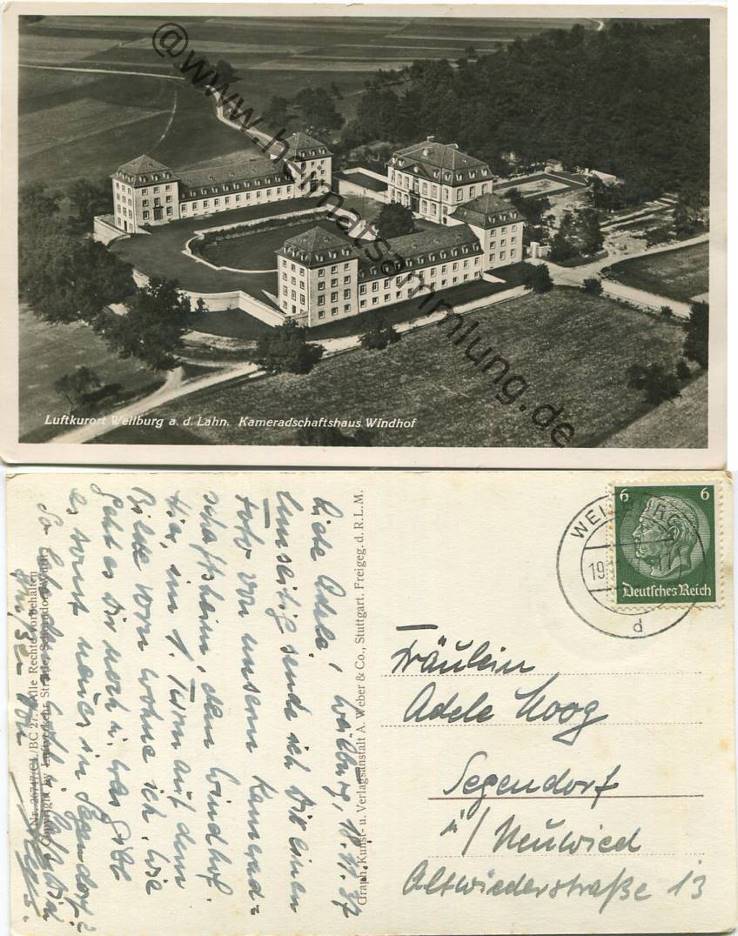 @www.heimatsammlung.de
Luftkurort Weilburg a. d. Lahn. Kameradschaftshaus Windhof
Weilburg, 18.4.37
Liebe Adele!
Umseitig sende ich Dir einen
Foto von unserm Kamerad-
schaftsheim, dem Windhof.
Hier, im 1. Turm auf dem
Bilde vorn wohne ich. Wie
geht es Dir noch u. was gibt
es sonst neues in Segendorf?
Grüßen
Graph. Kunst- u. Verlagsanstalt A. Weber & Co., Stuttgart. Freigeg. d. R.L.M.
Alle Rechte vorbehalten
Copyright by Luftverkehr Strähle, Schorndorf
WEILBURG
19
d
6 6
Deutsches Reich
Fräulein
Adele Hoog
Segendorf
ü/Neuwied
Altwiederstraße 13